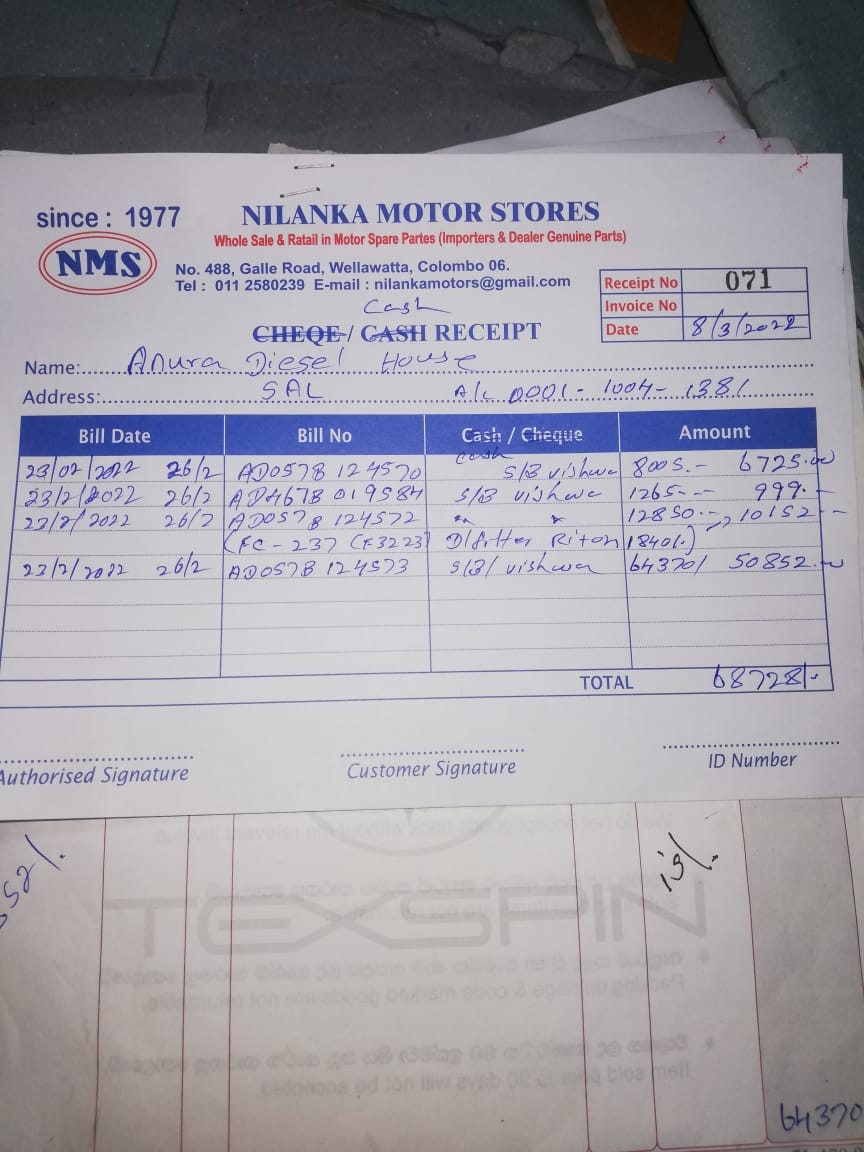 since : 1977
NILANKA MOTOR STORES
Whole Sale & Ratail in Motor Spare Partes (Importers & Dealer Genuine Parts)
NMS
No. 488, Galle Road, Wellawatta, Colombo 06.
Tel : 011 2580239 E-mail : nilankamotors@gmail.com
Receipt No 071
Invoice No
Date 8/3/2022
Cash
CHEQE / CASH RECEIPT
Name: Anura Diesel House
Address: SAL A/C 0001-1004-1381
Bill Date Bill No Cash / Cheque Amount
Cash
23/02/2022 26/2 AD057B 124570 S/B vishwa 8005.- 6725.00
23/2/2022 26/2 AD467B 019584 S/B vishwa 1265.-- 999.-
23/2/2022 26/2 AD057B 124572 " " 12850.-- 10152.-
(FC-237 (F3223) D/filter Riton 1840/.)
23/2/2022 26/2 AD057B 124573 S/B/ vishwa 64370/ 50852.00
TOTAL 68728/-
Authorised Signature
Customer Signature
ID Number
TEXSPIN
64370